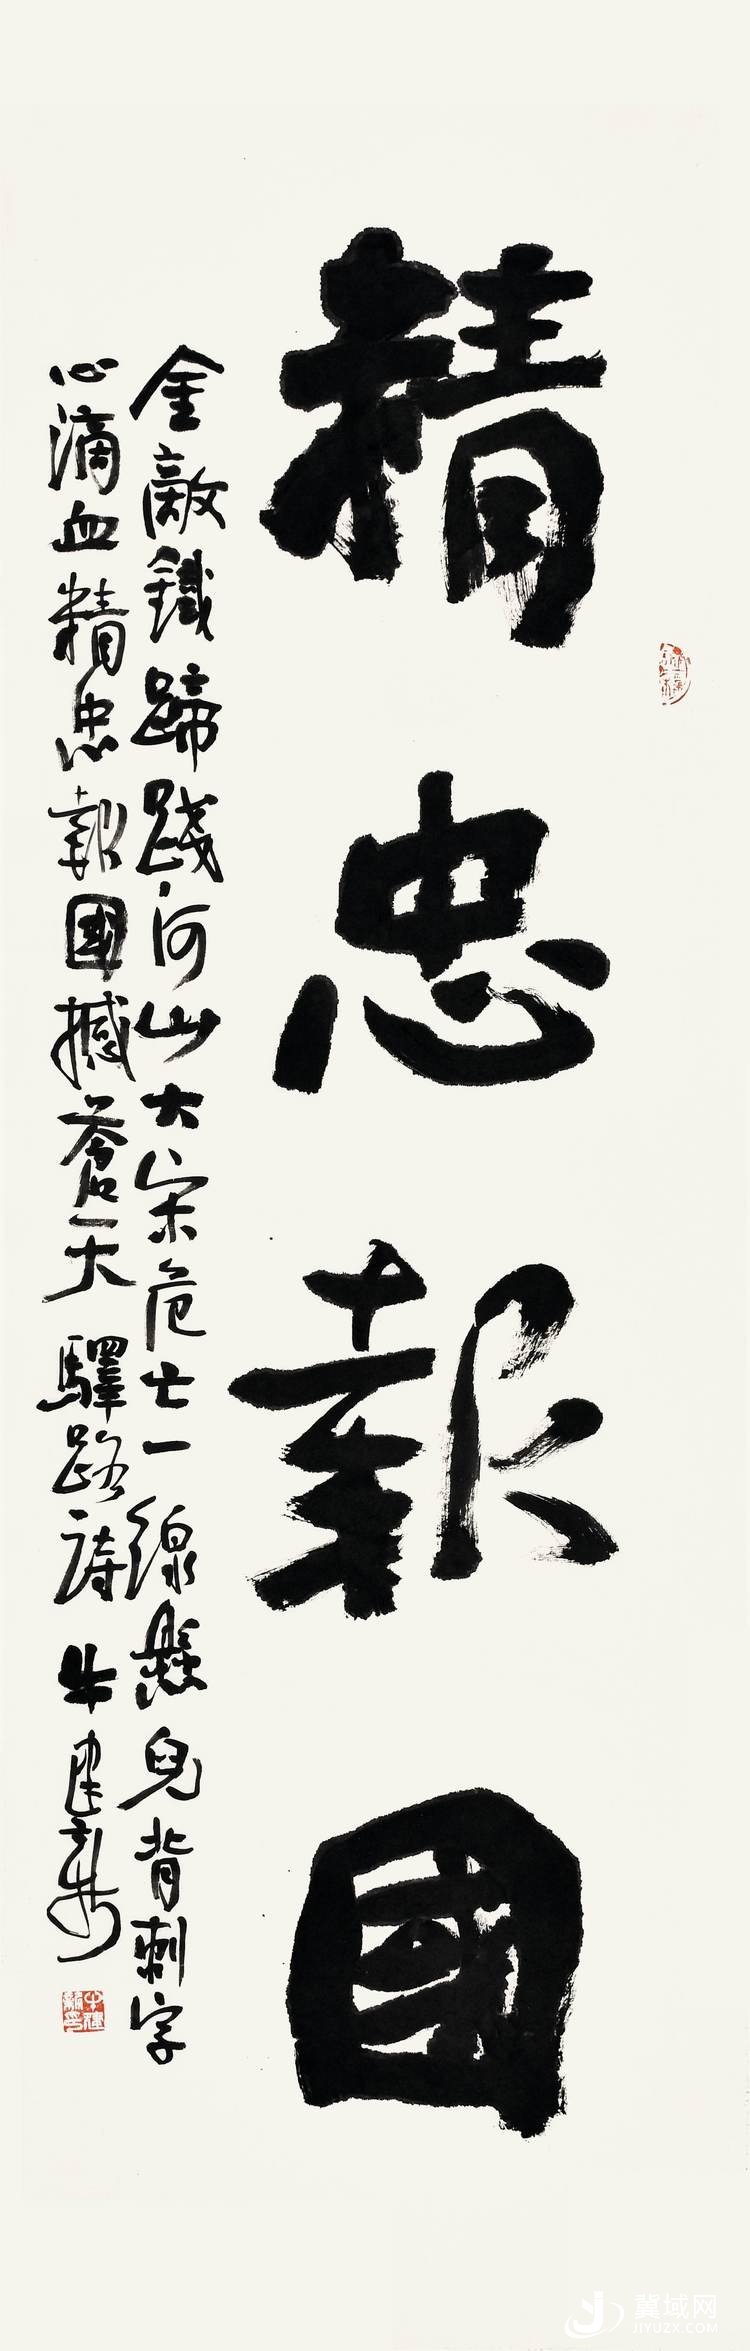 精忠報國
金敵鐵蹄踐河山大宋危亡一線懸兒背刺字
心滴血精忠報國撼蒼天 驛路詩 牛建新
冀域网
JIYUZX.COM